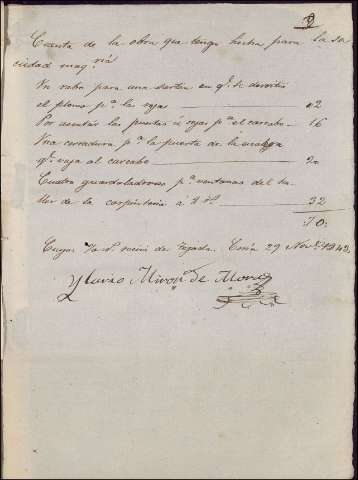 Cuenta de la obra que tengo hecha para la so
ciedad maq.ria
Un rabo para una sarten en q.e se derritio
el plomo p.a la reja 02
Por asentar las puertas ó rejas p.a el carcabo 16
Una cerradura p.a la puerta de la
q.e vaja al carcabo 20
Cuatro p.a ventanas del ta
ller de la carpinteria á 8 r.s 32
70
Cuyos 70 r.s recivi de Tejada. 29 Nov.e 1842
Ylario Miron de